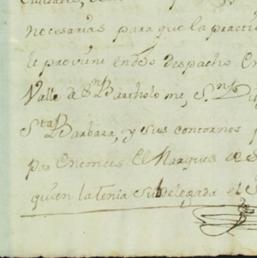 necesarias para que la practi
le previni en dho despacho En
Valle de Sn Bartholome, Snto
Sta Barbara, y sus contornos
pr Entonces El Marques de S
quien la tenia Subdelegada el S